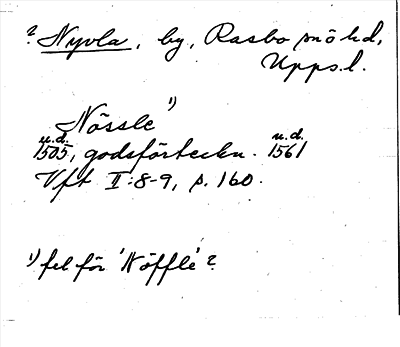 ? Nyvla, by, Rasbo snö hd,
Upps.l.
Nössle 1)
u.d. u.d.
1505, godsförteckn. 1561
Vft II:8-9, s. 160.
1) fel för 'Nöffle'?